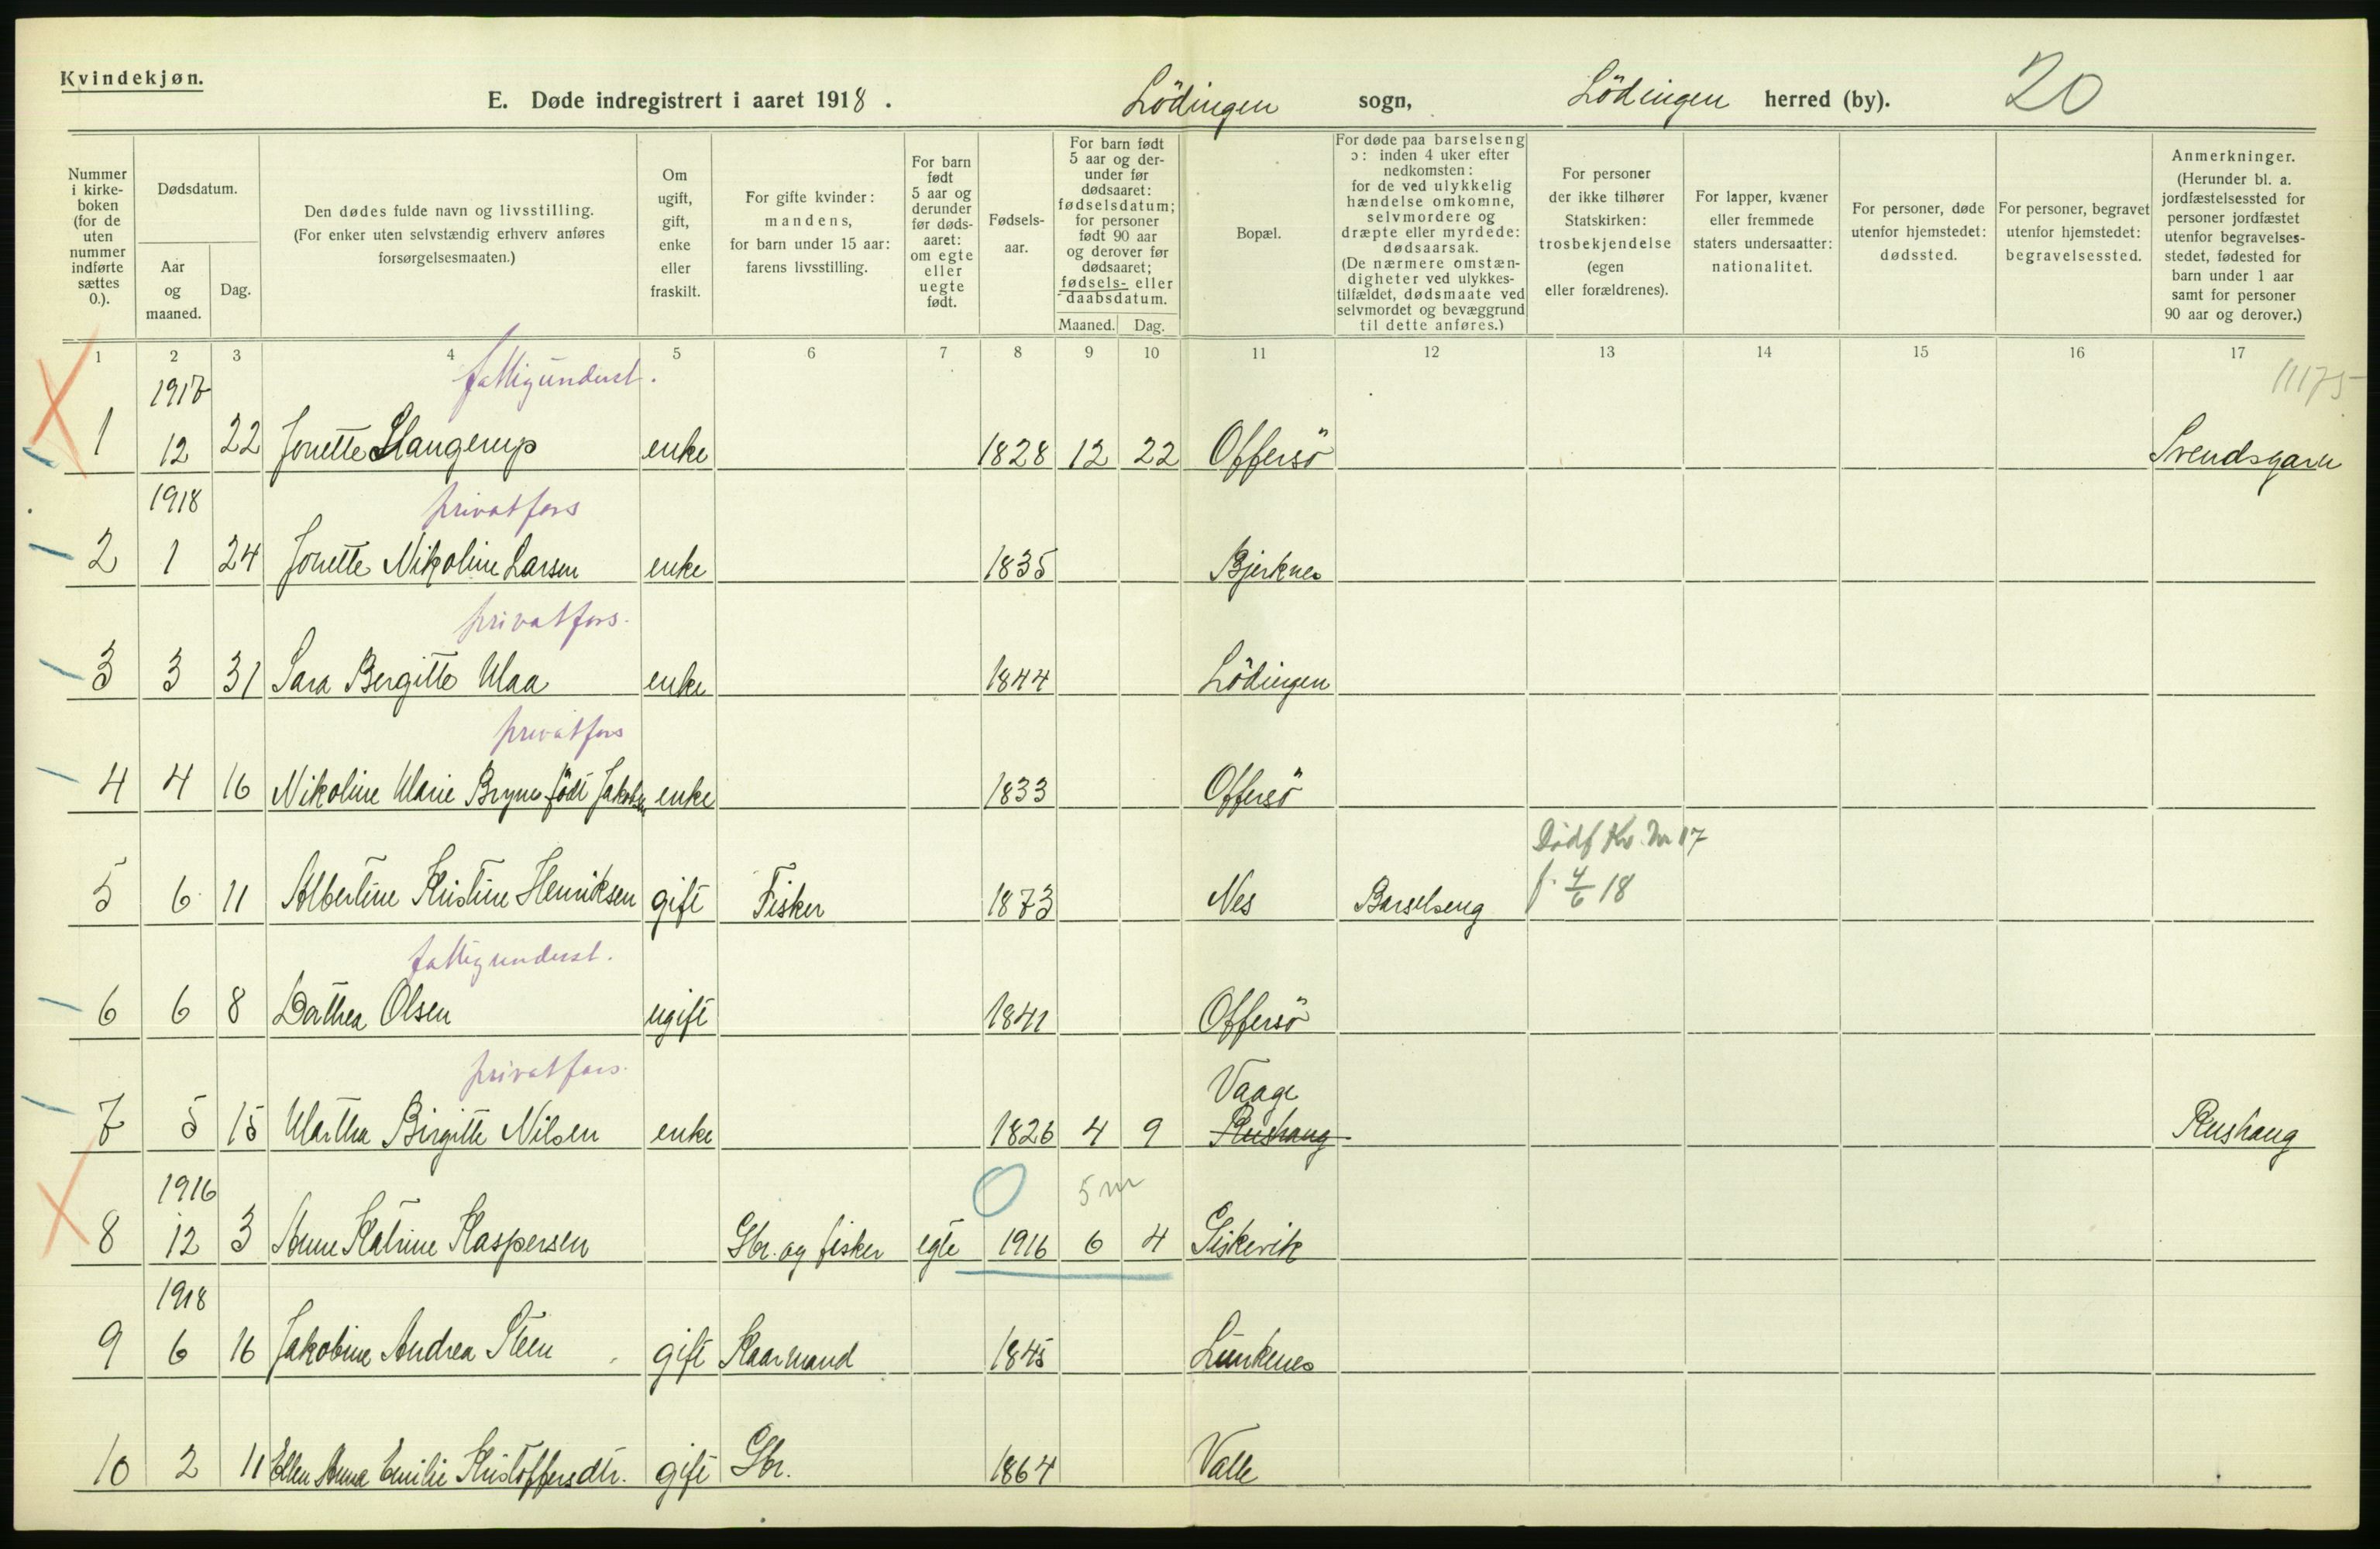 Kvindekjøn.
E. Døde indregistrert i aaret 1918. Lödingen sogn, Lödingen herred (by). 20
Nummer i kirke-boken (for de uten nummer indførte sættes 0.).
Dødsdatum.
Aar og maaned.
Dag.
Den dødes fulde navn og livsstilling.
(For enker uten selvstændig erhverv anføres forsørgelsesmaaten.)
Om ugift, gift, enke eller fraskilt.
For gifte kvinder: mandens, for barn under 15 aar: farens livsstilling.
For barn født 5 aar og derunder før døds-aaret: om egte eller uegte født.
Fødsels-aar.
For barn født 5 aar og der-under før dødsaaret: fødselsdatum; for personer født 90 aar og derover før dødsaaret; fødsels- eller daabsdatum.
Maaned. Dag.
Bopæl.
For døde paa barselseng ɔ: inden 4 uker efter nedkomsten: for de ved ulykkelig hændelse omkomne, selvmordere og dræpte eller myrdede: dødsaarsak.
(De nærmere omstæn-digheter ved ulykkes-tilfældet, dødsmaate ved selvmordet og bevæggrund til dette anføres.)
For personer der ikke tilhører Statskirken: trosbekjendelse (egen eller forældrenes).
For lapper, kvæner eller fremmede staters undersaatter: nationalitet.
For personer, døde utenfor hjemstedet: dødssted.
For personer, begravet utenfor hjemstedet: begravelsessted.
Anmerkninger.
(Herunder bl. a. jordfæstelsessted for personer jordfæstet utenfor begravelses-stedet, fødested for barn under 1 aar samt for personer 90 aar og derover.)
1 2 3 4 5 6 7 8 9 10 11 12 13 14 15 16 17
1917 fattigunderst. 11175
1 12 22 Jonette Slangerup enke 1828 12 22 Offersö Svendsgarn
1918 privatfors
2 1 24 Jonette Nikoline Larsen enke 1835 Bjerknes
privatfors.
3 3 31 Sara Bergitte Maa enke 1844 Lödingen
privatfors
4 4 16 Nikoline Marie Bryne född Jakobsen enke 1833 Offersö
Dødf Kv. Nr 17
5 6 11 Albertine Kristine Henriksen gift Fisker 1873 Nes Barselseng f. 4/6 18
fattigunderst.
6 6 8 Dorthea Olsen ugift 1841 Offersö
privatfors. Vaage
7 5 15 Martha Birgitte Nilsen enke 1826 4 9 Rushaug Rushaug
1916 0 5 m
8 12 3 Anne Katrine Kaspersen Gbr. og fisker egte 1916 6 4 Giskevik
1918
9 6 16 Jakobine Andrea Steen gift Kaarmand 1845 Lunkenes
10 2 11 Ellen Anna Emilie Kristoffersdtr. gift Gbr. 1864 Valle